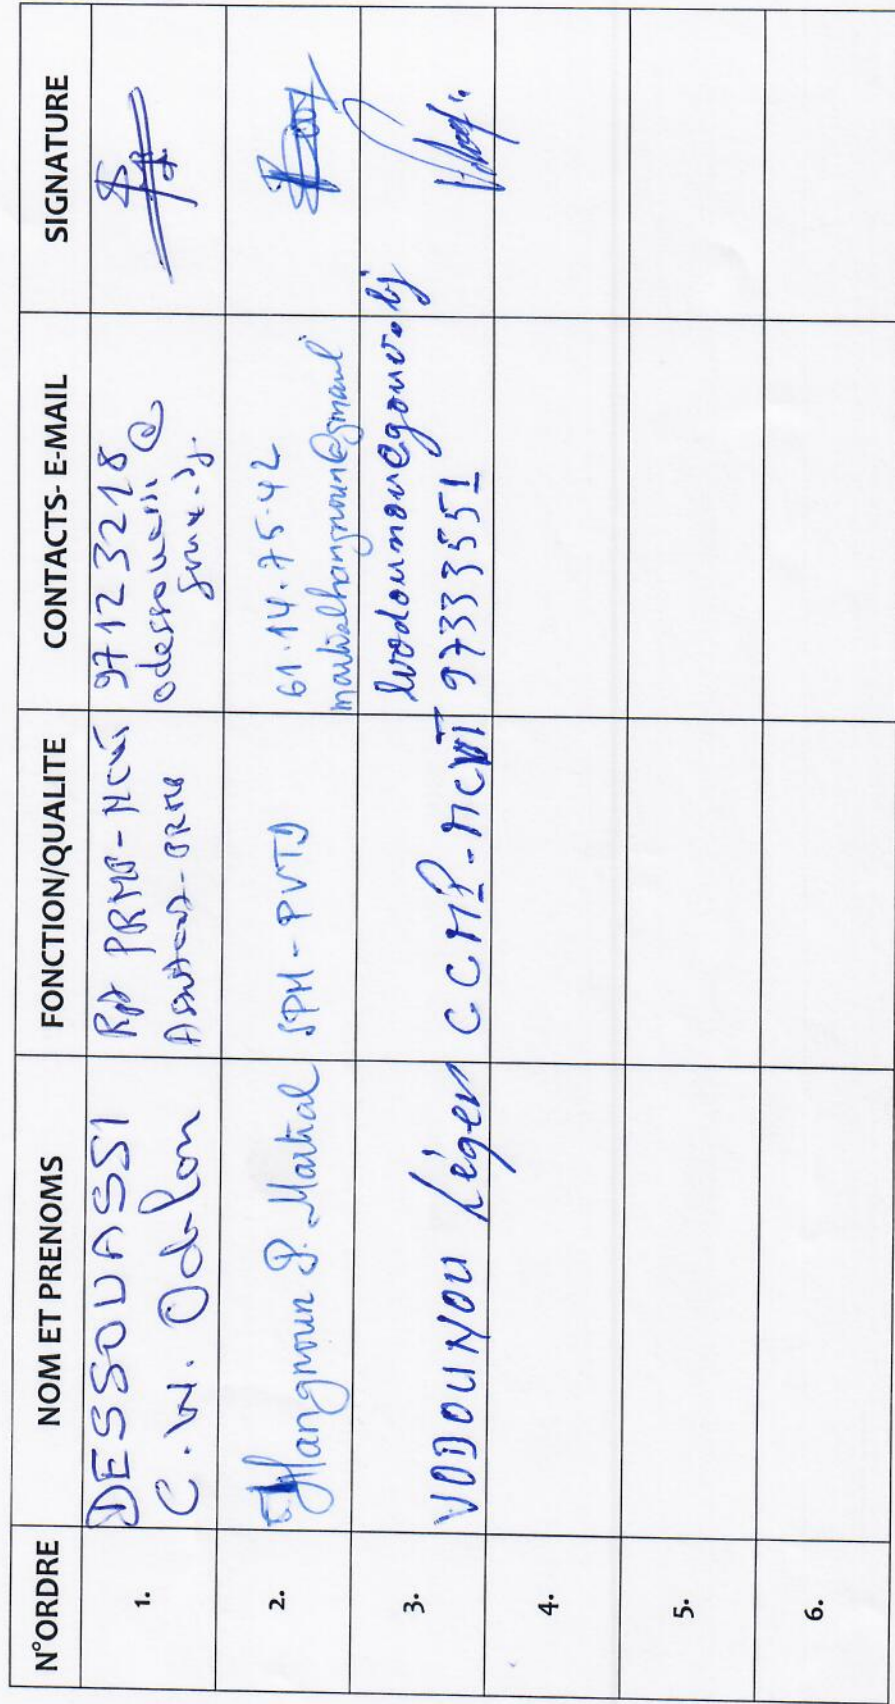 N°ORDRE NOM ET PRENOMS FONCTION/QUALITE CONTACTS- E-MAIL SIGNATURE
1. DESSOUASSI PRMP- 97123218
C. W. Odilon
2. Hangnoun P. Martial SPM-PVTD 61.14.75.42
martialhangnoun@gmail
3. VODOUNOU Léger CCMP-MCVT lvodounou@gouv.bj
97333551
4.
5.
6.